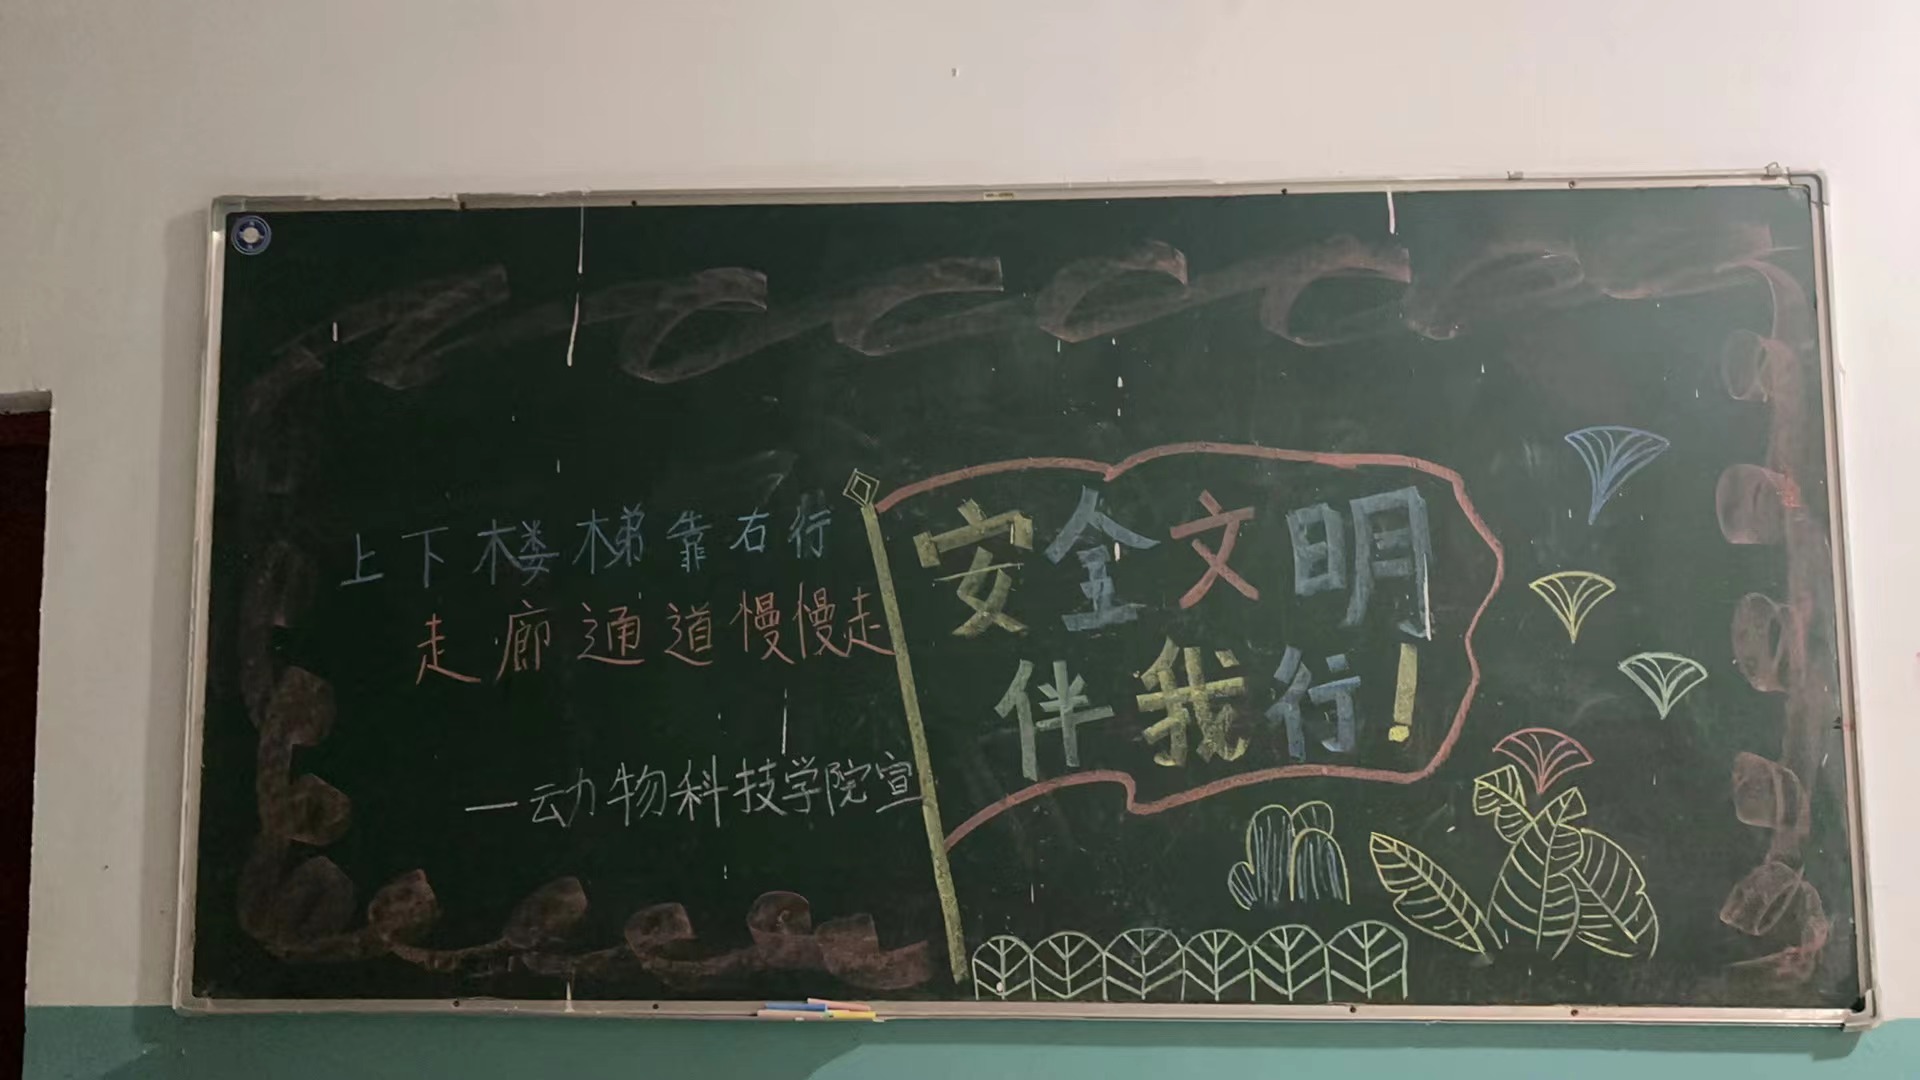 上下楼梯靠右行
走廊通道慢慢走
—动物科技学院宣
安全文明
伴我行!